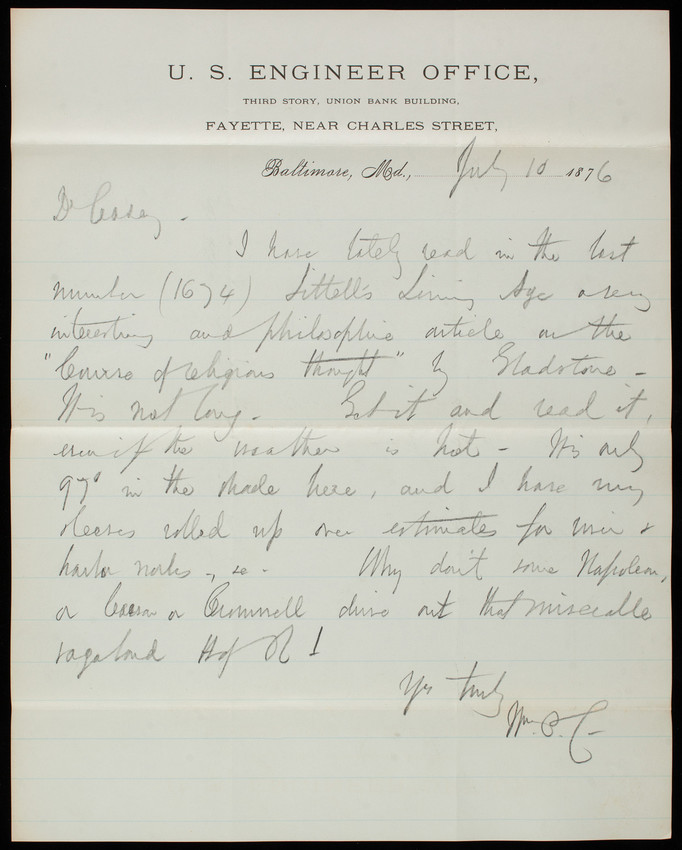 U. S. ENGINEER OFFICE,
THIRD STORY, UNION BANK BUILDING,
FAYETTE, NEAR CHARLES STREET,
Baltimore, Md., July 10 1876
Dr Casey -
I have lately read in the last
number (1674) Littell's Living Age a very
interesting and philosophic article on the
"Course of religious thought" by Gladstone -
It is not long - Get it and read it,
even if the weather is hot - It is only
97° in the shade here, and I have my
sleeves rolled up over estimates for river &
harbor works, &c - Why don't some Napoleon,
or Caesar or Cromwell drive out that miserable
vagabond H of R!
Yrs truly
Wm. P. C-